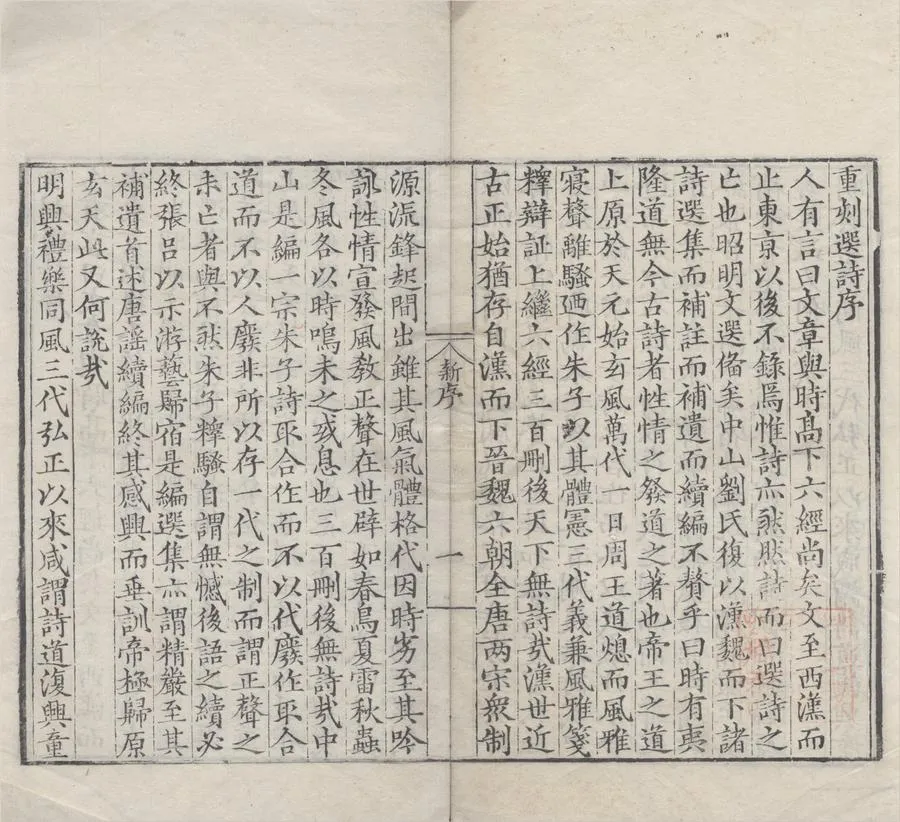 重刻選詩序
人有言曰文章與時髙下六經尚矣文至西漢而
止東京以後不錄焉惟詩亦然然詩而曰選詩之
亡也昭明文選俻矣中山劉氏復以漢魏而下諸
詩選集而補註而補遺而續編不贅乎曰時有夷
隆道無今古詩者性情之發道之著也帝王之道
上原於天元始玄風萬代一日周王道熄而風雅
寢聲離騷廼作朱子以其體憲三代義兼風雅箋
釋辯証上繼六經三百刪後天下無詩㢤漢世近
古正始猶存自漢而下晉魏六朝全唐两宋衆制
新序
一
源流鋒起間出雖其風氣體格代因時劣至其吟
詠性情宣發風敎正聲在世辟如春鳥夏雷秋蟲
冬風各以時鳴未之或息也三百刪後無詩㢤中
山是編一宗朱子詩取合作而不以代廢作取合
道而不以人廢非所以存一代之制而謂正聲之
未亡者與不然朱子釋騷自謂無憾後語之續必
終張吕以示游藝歸宿是編選集亦謂精嚴至其
補遺首述唐謡續編終其感興而垂訓帝極歸原
玄天此又何說㢤
明興禮樂同風三代弘正以來咸謂詩道復興童